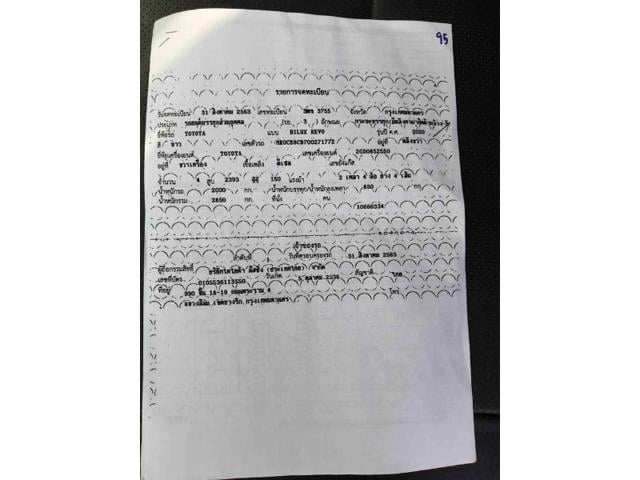 95
รายการจดทะเบียน
วันจดทะเบียน 31 สิงหาคม 2563 เลขทะเบียน 3755 จังหวัด กรุงเทพมหานคร
ประเภท รถยนต์บรรทุกส่วนบุคคล (รย. 3 ) ลักษณะ
ยี่ห้อรถ TOYOTA แบบ HILUX REVO รุ่นปี ค.ศ. 2020
สี ขาว เลขตัวรถ อยู่ที่
ยี่ห้อเครื่องยนต์ TOYOTA เลขเครื่องยนต์
อยู่ที่ ขวาเครื่อง เชื้อเพลิง ดีเซล เลขถังแก๊ส
จำนวน 4 สูบ 2393 ซีซี 150 แรงม้า 2 เพลา 4 ล้อ ยาง 4 เส้น
น้ำหนักรถ 2000 กก. น้ำหนักบรรทุก/น้ำหนักลงเพลา 850 กก.
น้ำหนักรวม 2850 กก. ที่นั่ง คน
10666334
เจ้าของรถ
ลำดับที่ 1 วันที่ครอบครองรถ 31 สิงหาคม 2563
ผู้ถือกรรมสิทธิ์ (ประเทศไทย) จำกัด
เลขที่บัตร 0105536113550 วันเกิด 5 ตุลาคม 2536 สัญชาติ ไทย
ที่อยู่ 990 ชั้น 18-19 ถนนพระราม 4 โทร
แขวงสีลม เขตบางรัก กรุงเทพมหานคร